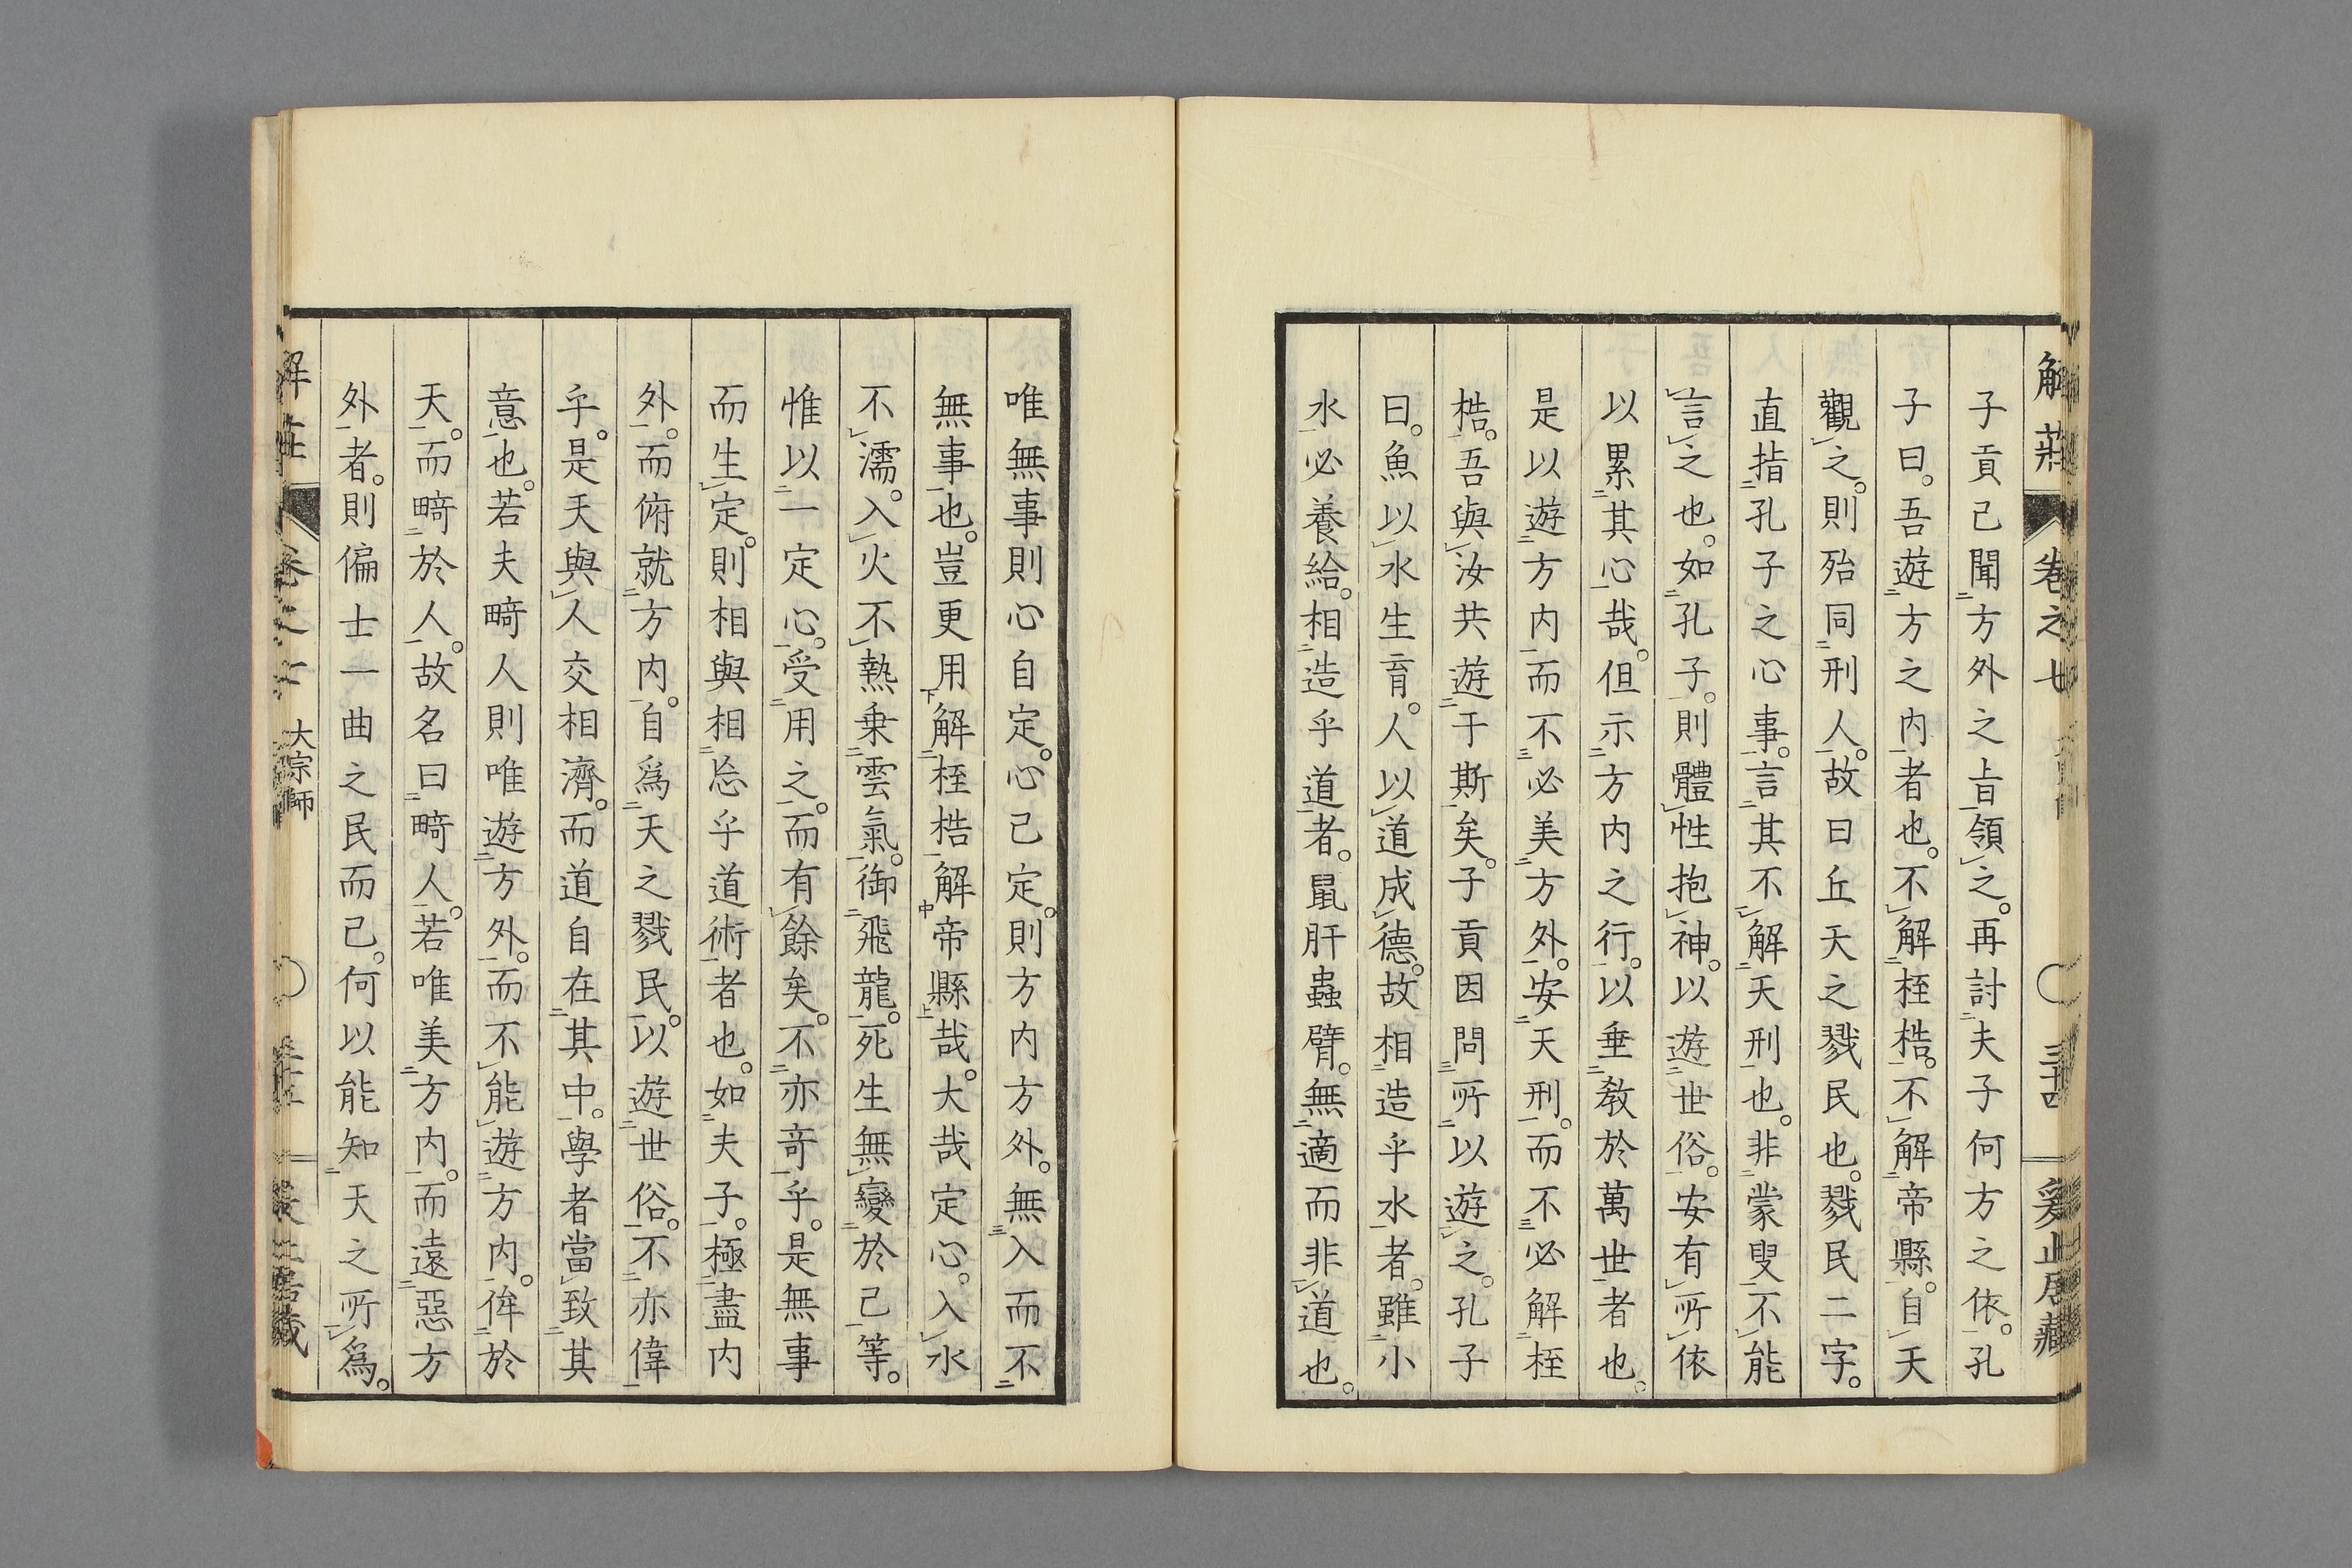 解莊 卷之七 三十四 爰止居藏
子貢已聞方外之旨領之。再討夫子何方之依。孔
子曰。吾遊方之内者也。不解桎梏。不解帝縣。自天
觀之。則殆同刑人。故曰丘天之戮民也。戮民二字。
直指孔子之心事。言其不解天刑也。非蒙叟不能
言之也。如孔子。則體性抱神。以遊世俗。安有所依
以累其心哉。但示方内之行。以垂教於萬世者也。
是以遊方内而不必美方外。安天刑。而不必解桎
梏。吾與汝共遊于斯矣。子貢因問所以遊之。孔子
曰。魚以水生育。人以道成德。故相造乎水者。雖小
水必養給。相造乎道者。鼠肝蟲臂。無適而非道也。
唯無事則心自定。心已定。則方内方外。無入而不
無事也。豈更用解桎梏解帝縣哉。大哉定心。入水
不濡。入火不熱乗雲氣。御飛龍。死生無變於己等。
惟以一定心。受用之。而有餘矣。不亦竒乎。是無事
而生定。則相與相忘乎道術者也。如夫子。極盡内
外。而俯就方内。自爲天之戮民。以遊世俗。不亦偉
乎。是天與人交相濟。而道自在其中。學者當致其
意也。若夫畸人則唯遊方外。而不能遊方内。侔於
天。而畸於人。故名曰畸人。若唯美方内。而遠惡方
外者。則偏士一曲之民而已。何以能知天之所爲。
解莊 卷之七 大宗師